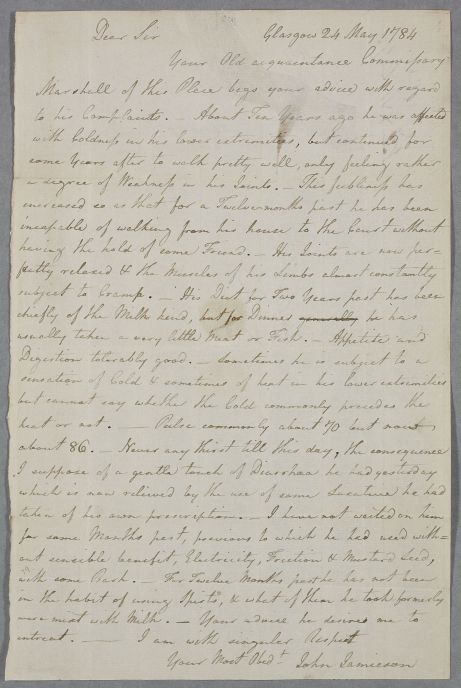 Dear Sir Glasgow 24 May 1784
Your Old acquaintance Commissary
Marshall of this Place begs your advice with regard
to his Complaints. — About Ten Years ago he was affected
with Coldness in his lower extremities, but continued for
some Years after to walk pretty well, only feeling rather
a degree of Weakness in his Joints. — This feebleness has
increased so as that for a Twelvemonths past he has been
incapable of walking from his house to the Court without
having the hold of some Friend. — His Joints are now per-
fectly relaxed & the Muscles of his Limbs almost constantly
subject to Cramp. — His Diet for Two Years past has been
chiefly of the Milk kind, but for Dinner generally he has
usually taken a very little Meat or Fish. — Appetite and
Digestion tolerably good. — Sometimes he is subject to a
sensation of Cold & sometimes of heat in his lower extremities
but cannot say whether the Cold commonly precedes the
heat or not. — Pulse commonly about 70 but now
about 86. — Never any thirst till this day, the consequence
I suppose of a gentle touch of Diarrhœa he had yesterday
which is now relieved by the use of some he had
taken of his own prescription. — I have not waited on him
for some Months past, previous to which he had used with=
out sensible benefit, Electricity, Friction & Mustard Seed,
with some Bark. — For Twelve Months past he has not been
in the habit of using Spirits, & what of them he took formerly
were mixt with Milk. — Your advice he desires me to
intreat. — I am with singular Respect
Your Most Obedt. John Jamieson